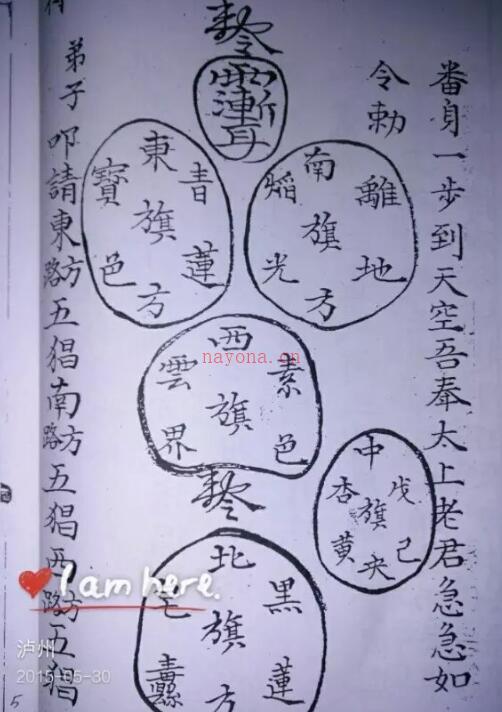 番身一步到天空吾奉太上老君急急如
令勅
南
離地
旗
焰光
方
東
青蓮
旗
寶色
方
西
素色
旗
雲界
中
戊己
旗
杏黃
央
北
黑蓮
旗
方
弟子
叩請東方五猖南方五猖西方五猖
路
路
路
I am here.
泸州
2015-05-30
5
nayona.cn